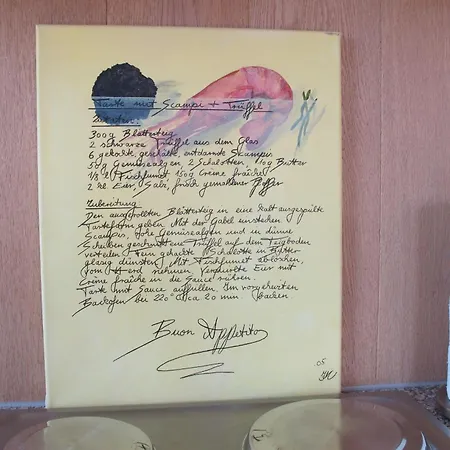 Tarte mit Scampi + Trüffel
Zutaten:
300g Blätterteig
2 schwarze Trüffel aus dem Glas
6 gekochte, geschälte, entdarmte Scampis
50g Gemüsealgen 2 Schalotten, 10g Butter
1/8 l Fischfumet 150g Crème fraîche
2 kl. Eier, Salz, frisch gemahlener Pfeffer
Zubereitung
Den ausgerollten Blätterteig in eine kalt ausgespülte
Tarteform geben. Mit der Gabel einstechen.
Scampis, Gemüsealgen und in dünne
Scheiben geschnittene Trüffel auf dem Teigboden
verteilen. Fein gehackte Schalotte in Butter
glasig dünsten. Mit Fischfumet ablöschen,
vom Herd nehmen, verquirlte Eier mit
Crème fraîche in die Sauce rühren.
Tarte mit Sauce auffüllen. Im vorgeheizten
Backofen bei 220° circa 20 min. backen
Buon Appetito
05